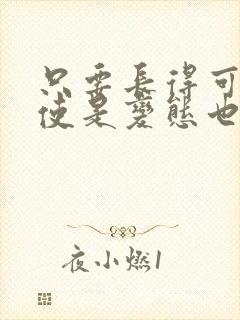 只要長得可
使是變態也
夜小燃1